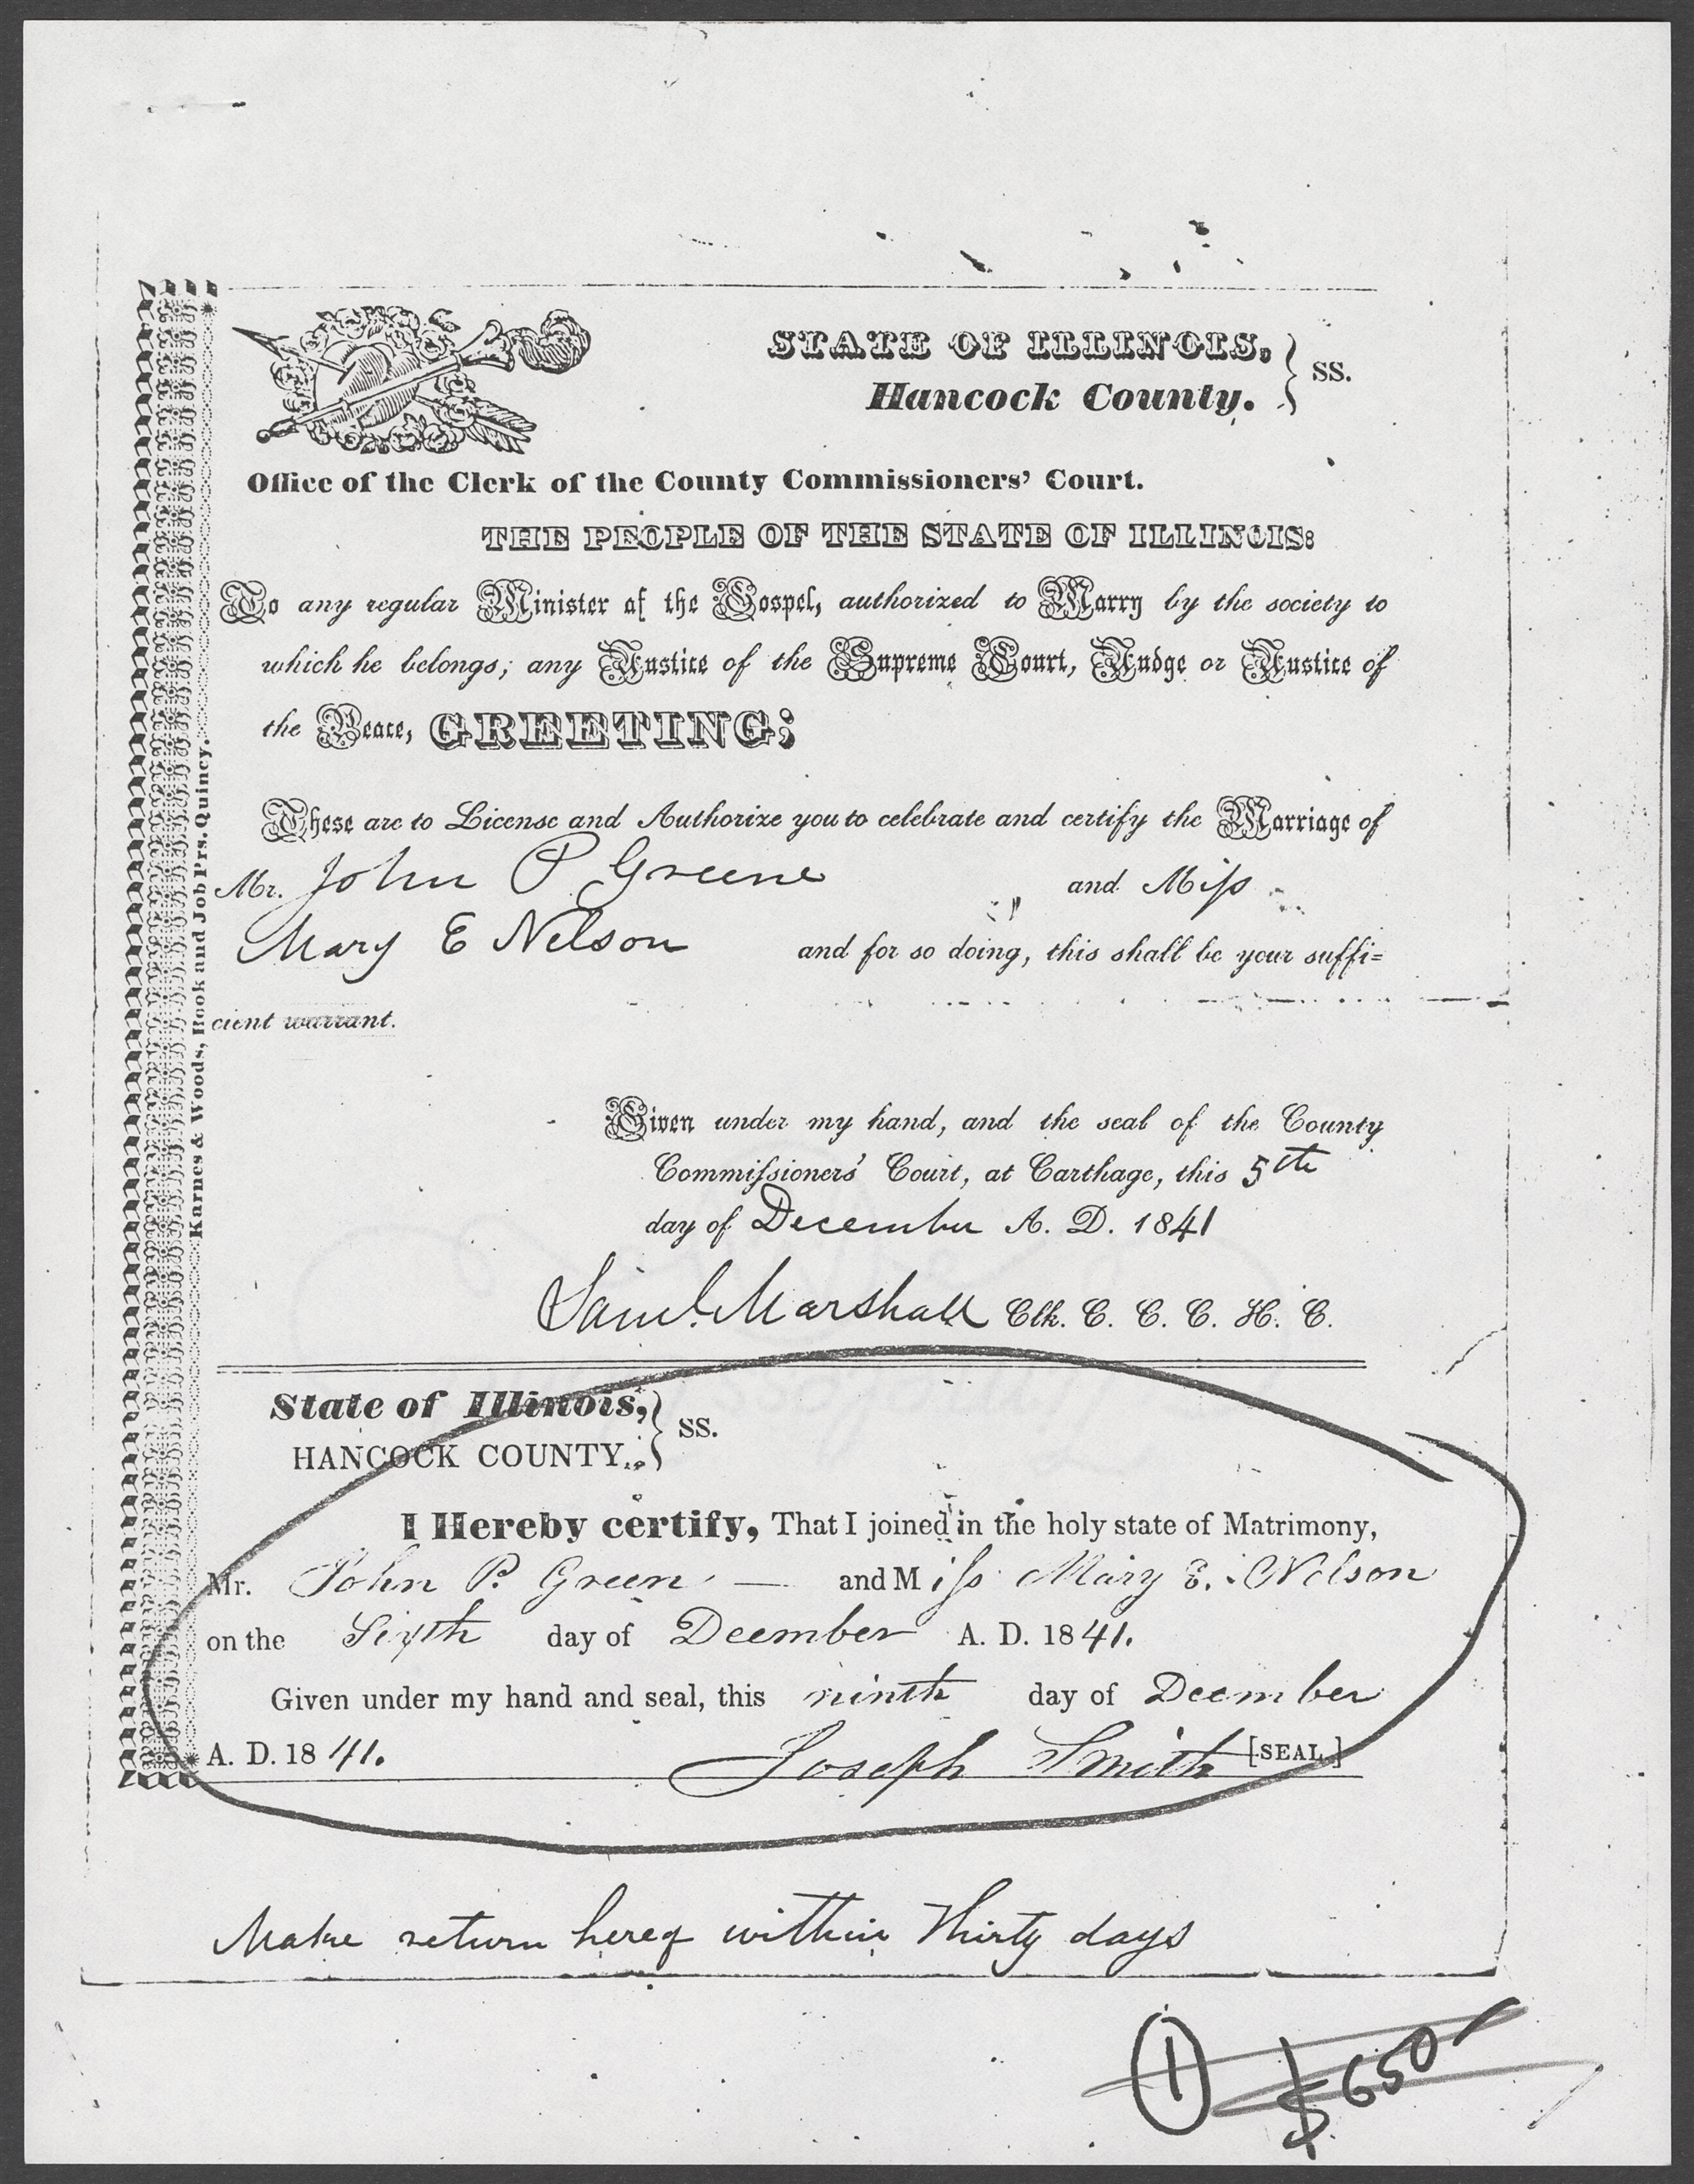 STATE OF ILLINOIS, } SS.
Hancock County.
Office of the Clerk of the County Commissioners' Court.
THE PEOPLE OF THE STATE OF ILLINOIS:
To any regular Minister af the Gospel, authorized to Marry by the society to
which he belongs; any Justice of the Supreme Court, Judge or Justice of
the Peace, GREETING;
These are to License and Authorize you to celebrate and certify the Marriage of
Mr. John P Greene and Miss
Mary E Nelson and for so doing, this shall be your suffi=
cient warrant.
Given under my hand, and the seal of the County
Commissioners' Court, at Carthage, this 5th
day of December A. D. 1841
Saml. Marshall Clk. C. C. C. H. C.
State of Illinois, } SS.
HANCOCK COUNTY.
I Hereby certify, That I joined in the holy state of Matrimony,
Mr. John P. Green — and Miss Mary E. Nelson
on the Sixth day of December A. D. 1841.
Given under my hand and seal, this ninth day of December
A. D. 1841. Joseph Smith [SEAL.]
Make return hereof within Thirty days
1 $650
Karnes & Woods, Book and Job Prs. Quincy.